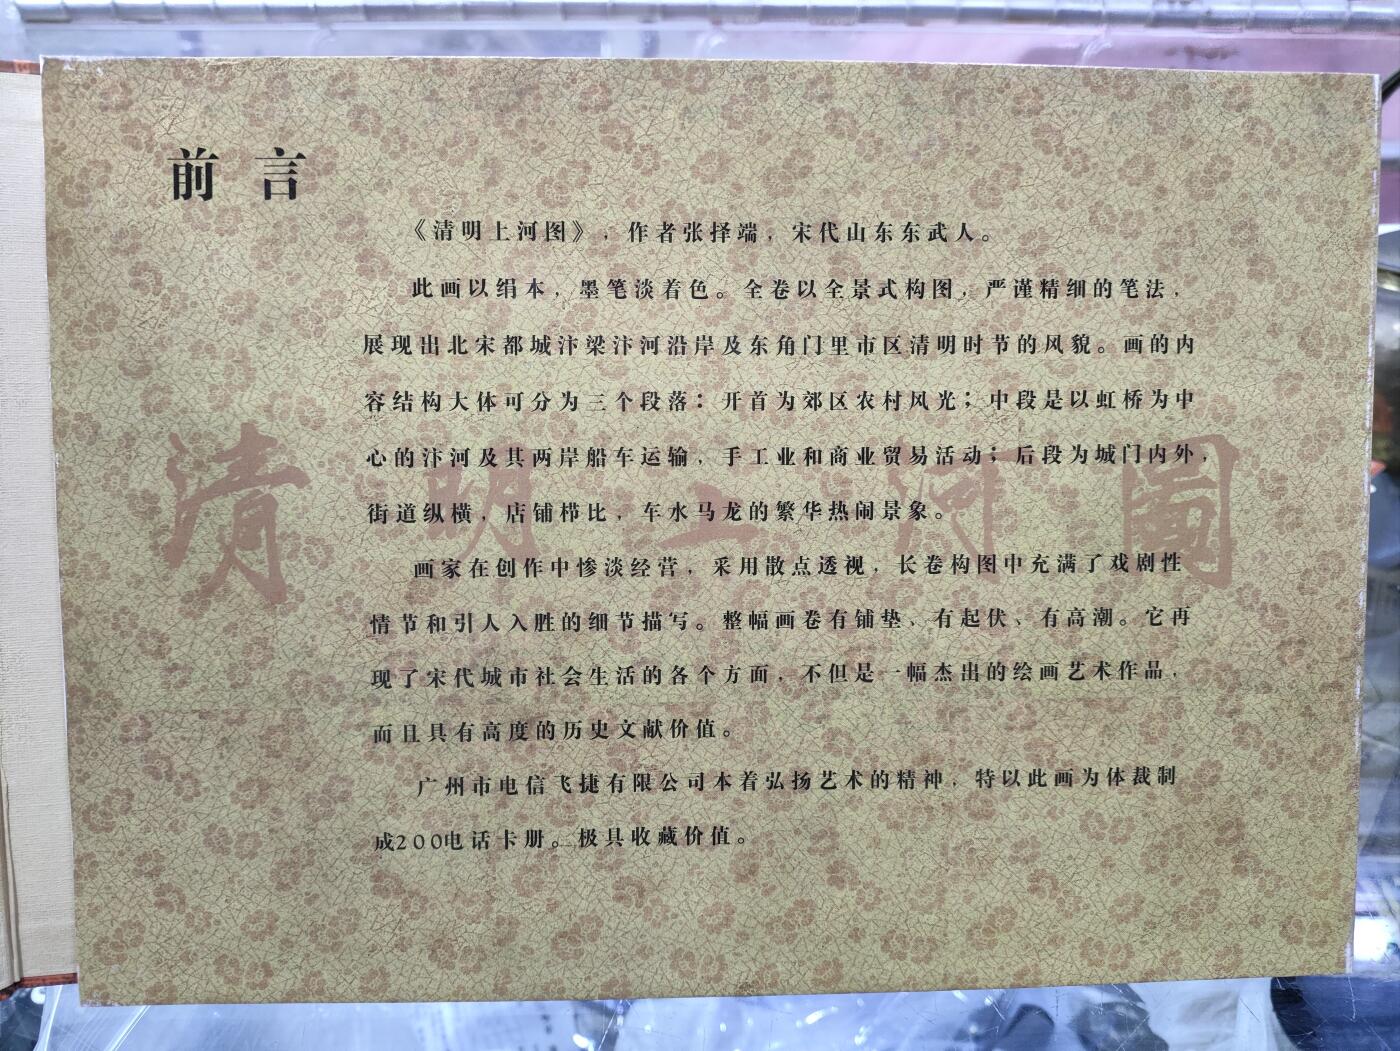 前言
《清明上河图》，作者张择端，宋代山东东武人。
此画以绢本，墨笔淡着色。全卷以全景式构图，严谨精细的笔法，
展现出北宋都城汴梁汴河沿岸及东角门里市区清明时节的风貌。画的内
容结构大体可分为三个段落：开首为郊区农村风光；中段是以虹桥为中
心的汴河及其两岸船车运输，手工业和商业贸易活动；后段为城门内外，
街道纵横，店铺栉比，车水马龙的繁华热闹景象。
画家在创作中惨淡经营，采用散点透视，长卷构图中充满了戏剧性
情节和引人入胜的细节描写。整幅画卷有铺垫、有起伏、有高潮。它再
现了宋代城市社会生活的各个方面，不但是一幅杰出的绘画艺术作品，
而且具有高度的历史文献价值。
广州市电信飞捷有限公司本着弘扬艺术的精神，特以此画为体裁制
成200电话卡册。极具收藏价值。
清明上河圖